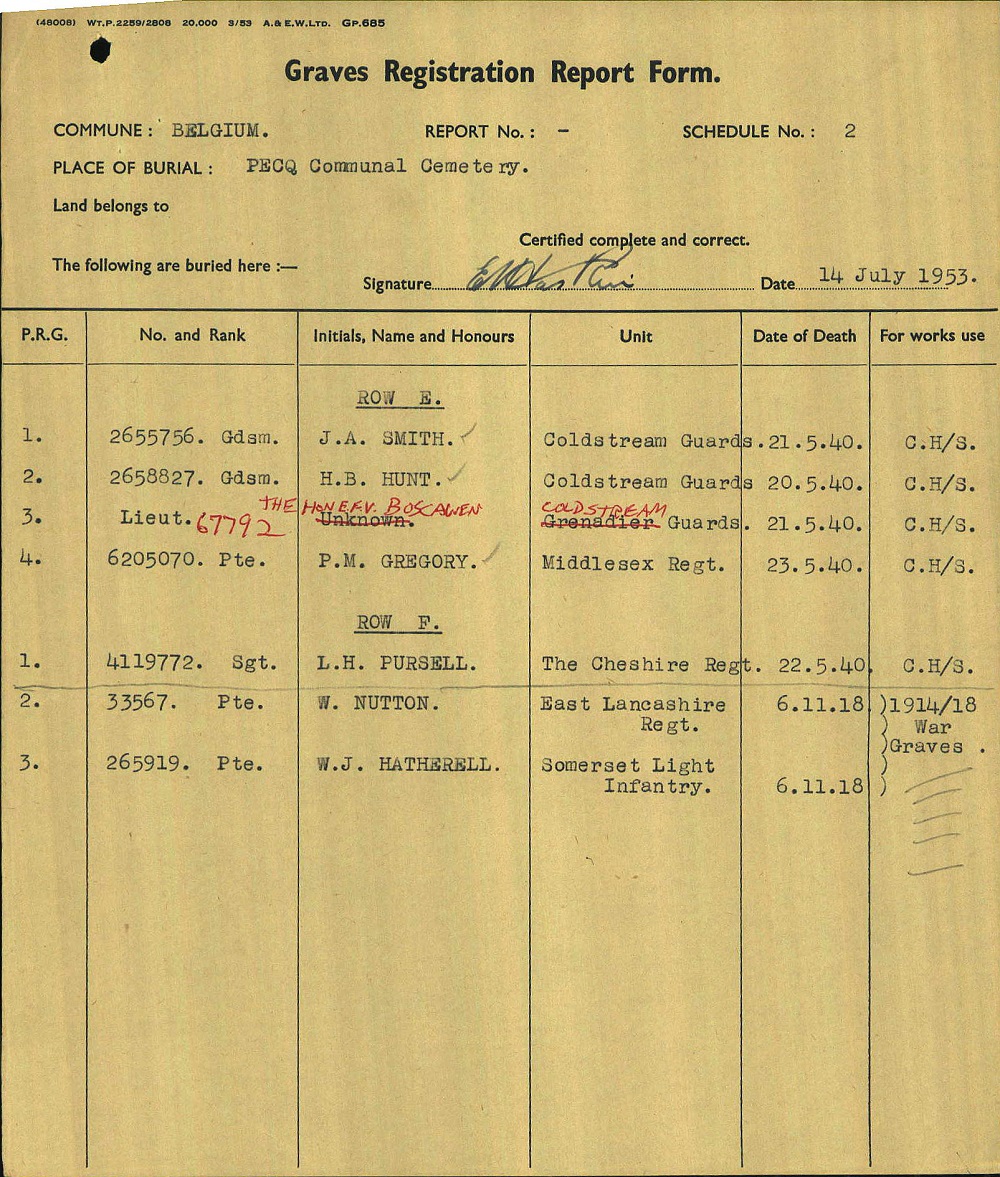 (48008) WT.P.2259/2808 20,000 3/53 A.& E.W.LTD. GP.685
Graves Registration Report Form.
COMMUNE : BELGIUM. REPORT No. : - SCHEDULE No. : 2
PLACE OF BURIAL : PECQ Communal Cemetery.
Land belongs to
Certified complete and correct.
The following are buried here :—
Signature Date 14 July 1953.
P.R.G. No. and Rank Initials, Name and Honours Unit Date of Death For works use
ROW E.
1. 2655756. Gdsm. J.A. SMITH. ✓ Coldstream Guards. 21.5.40. C.H/S.
2. 2658827. Gdsm. H.B. HUNT. ✓ Coldstream Guards 20.5.40. C.H/S.
THE HON E.F.V. BOSCAWEN COLDSTREAM
3. Lieut. 67792 Unknown. Grenadier Guards. 21.5.40. C.H/S.
4. 6205070. Pte. P.M. GREGORY. ✓ Middlesex Regt. 23.5.40. C.H/S.
ROW F.
1. 4119772. Sgt. L.H. PURSELL. The Cheshire Regt. 22.5.40. C.H/S.
2. 33567. Pte. W. NUTTON. East Lancashire 6.11.18 )1914/18
Regt. ) War
)Graves .
3. 265919. Pte. W.J. HATHERELL. Somerset Light )
Infantry. 6.11.18 )